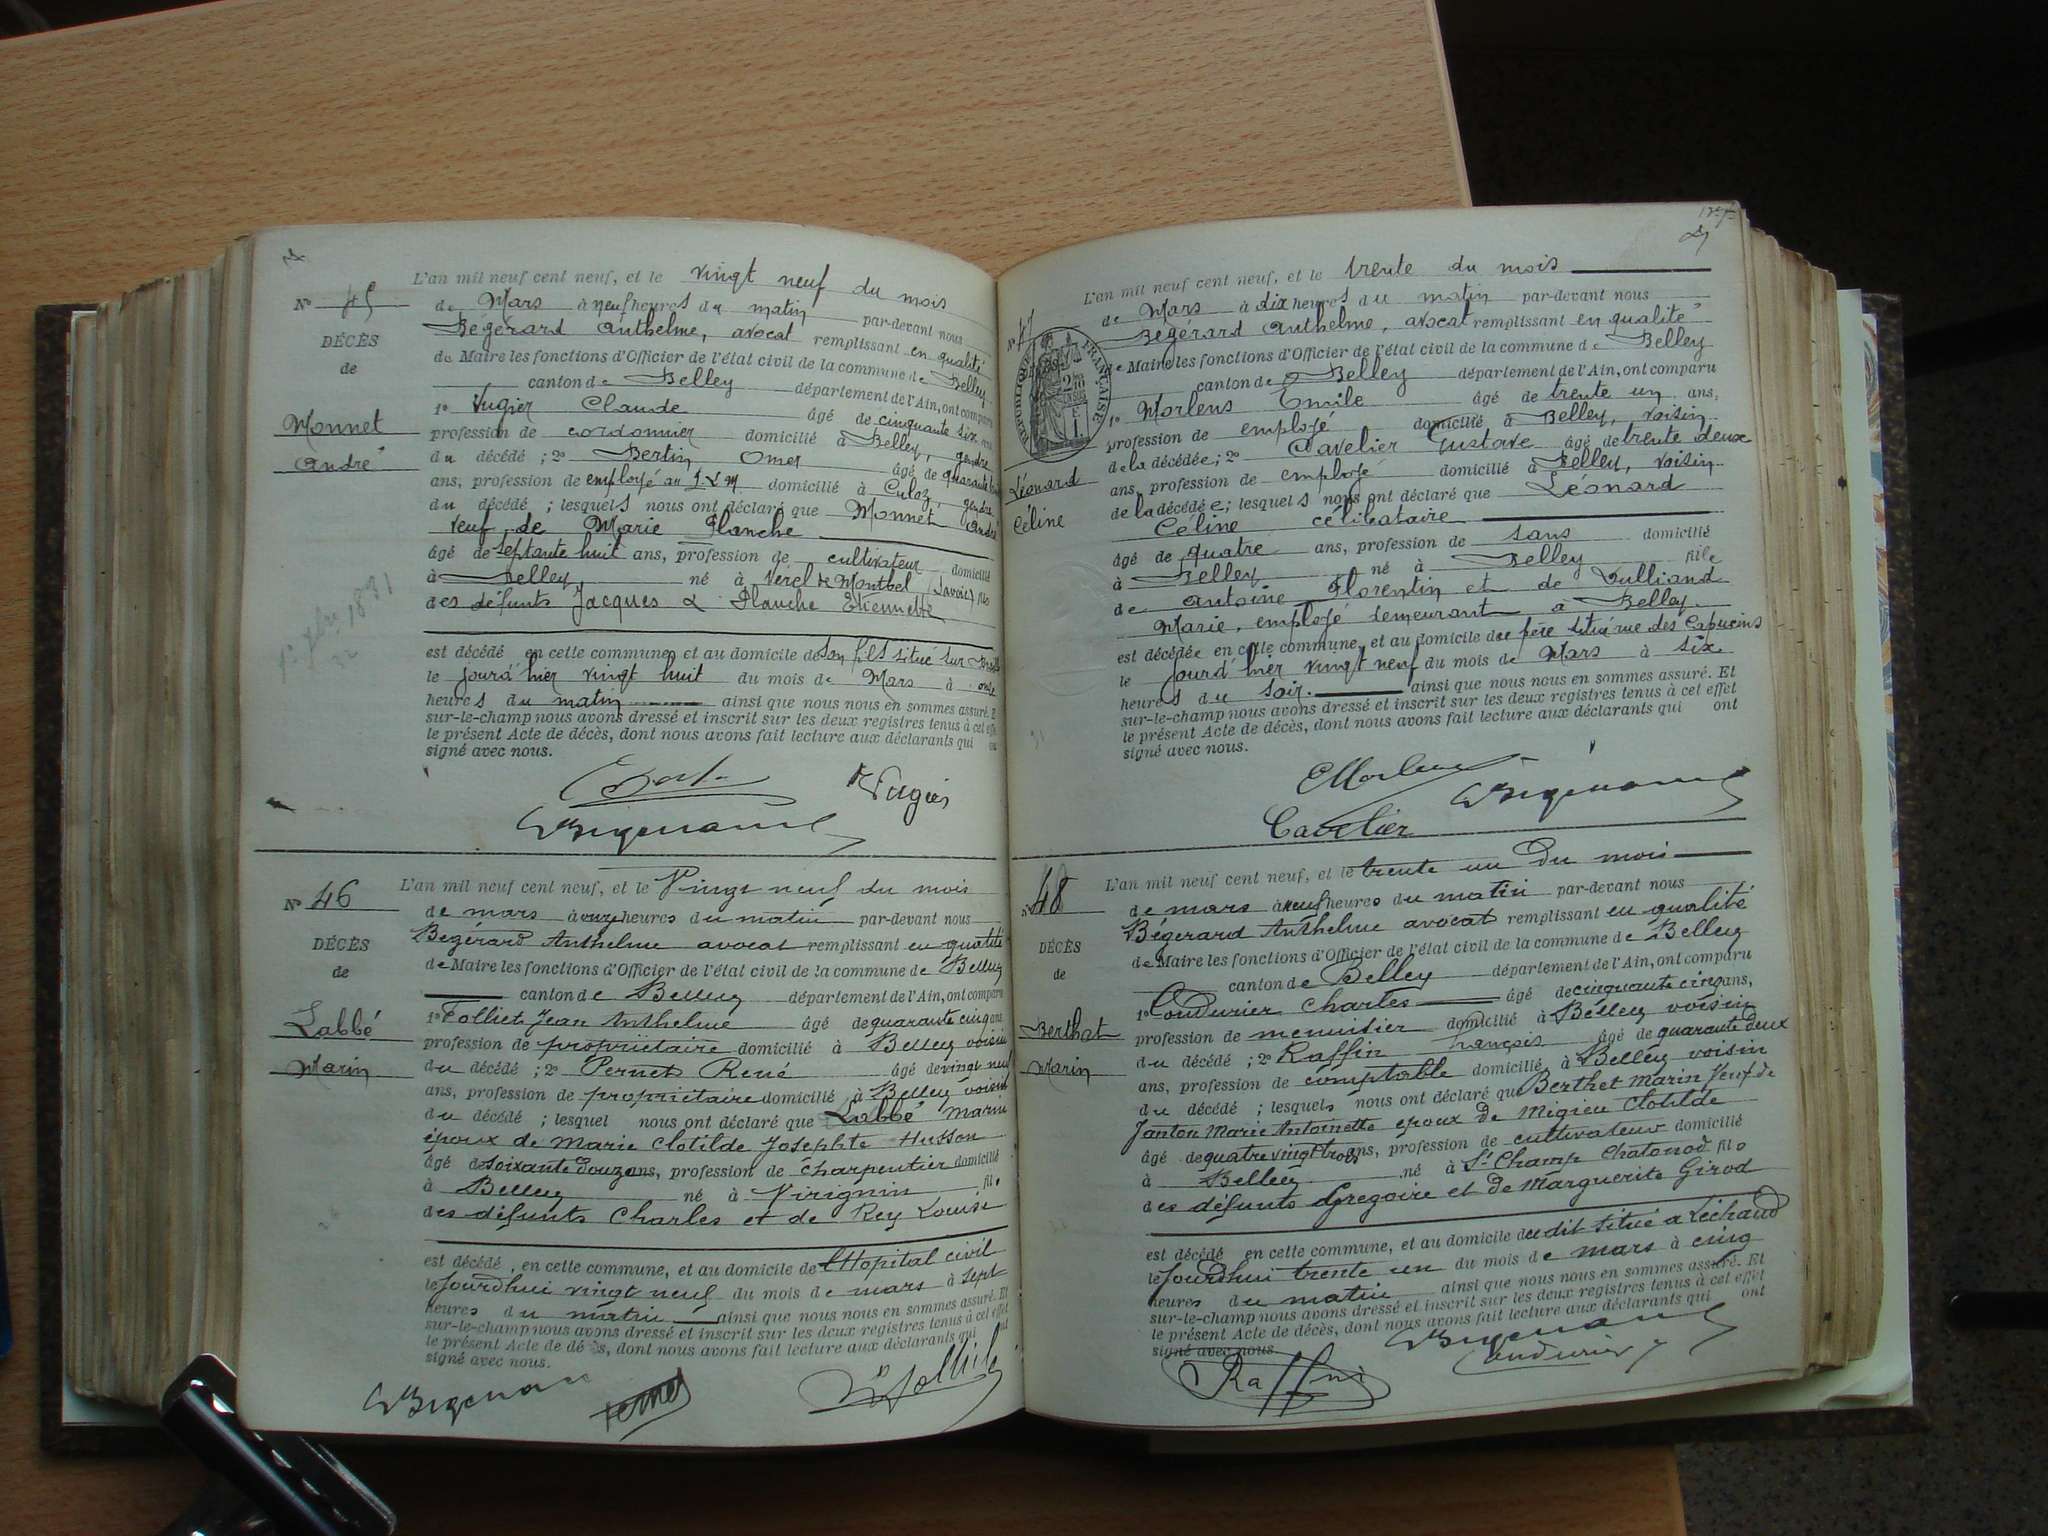 L'an mil neuf cent neuf, et le vingt neuf du mois
No 45
de Mars à neuf heures du matin par-devant nous
Bégérard Anthelme, avocat remplissant en qualité
DÉCÈS
de
de Maire les fonctions d'Officier de l'état civil de la commune de Belley
canton de Belley département de l'Ain, ont comparu
Monnet
André
1o Vugier Claude âgé de cinquante six ans
profession de cordonnier domicilié à Belley, gendre
du décédé ; 2o Bertin Omer âgé de quarante
ans, profession de employé au P L M domicilié à Culoz, gendre
du décédé ; lesquels nous ont déclaré que Monnet André
veuf de Marie Planche
âgé de septante huit ans, profession de cultivateur domicilié
à Belley, né à Verel de Montbel (Savoie) fils
des défunts Jacques & Planche Etiennette
1831
est décédé en cette commune, et au domicile de son fils situé sur
le jourd'hier vingt huit du mois de Mars à onze
heures du matin ainsi que nous nous en sommes assuré. Et
sur-le-champ nous avons dressé et inscrit sur les deux registres tenus à cet effet
le présent Acte de décès, dont nous avons fait lecture aux déclarants qui ont
signé avec nous.
No 46
L'an mil neuf cent neuf, et le Vingt neuf du mois
de mars à onze heures du matin par-devant nous
Bégérard Anthelme avocat remplissant en qualité
DÉCÈS
de
de Maire les fonctions d'Officier de l'état civil de la commune de Belley
canton de Belley département de l'Ain, ont comparu
Labbé
Marin
1o Folliet Jean Anthelme âgé de quarante cinq ans
profession de propriétaire domicilié à Belley voisin
du décédé ; 2o Pernet René âgé de vingt neuf
ans, profession de propriétaire domicilié à Belley voisin
du décédé ; lesquel nous ont déclaré que Labbé Marin
époux de Marie Clotilde Josephte Husson
âgé de soixante douze ans, profession de charpentier domicilié
à Belley né à Virignin fils
des défunts Charles et de Rey Louise
est décédé, en cette commune, et au domicile de l'Hopital civil
le jourdhui vingt neuf du mois de mars à sept
heures du matin ainsi que nous nous en sommes assuré. Et
sur-le-champ nous avons dressé et inscrit sur les deux registres tenus à cet effet
le présent Acte de décès, dont nous avons fait lecture aux déclarants qui ont
signé avec nous.
Pernet
L'an mil neuf cent neuf, et le trente du mois
No 47
de Mars à dix heures du matin par-devant nous
Bégérard Anthelme, avocat remplissant en qualité
RÉPUBLIQUE FRANÇAISE
de Maire les fonctions d'Officier de l'état civil de la commune de Belley
canton de Belley département de l'Ain, ont comparu
Léonard
Céline
1o Morlens Emile âgé de trente un ans,
profession de employé domicilié à Belley, voisin
de la décédée ; 2o Cavelier Gustave âgé de trente deux
ans, profession de employé domicilié à Belley, voisin
de la décédée ; lesquels nous ont déclaré que Léonard
Céline célibataire
âgé de quatre ans, profession de sans domicilié
à Belley né à Belley fille
de Antoine Florentin et de Vulliand
Marie, employé demeurant à Belley.
est décédée en cette commune, et au domicile de père situé rue des Capucins
le jourd'hier vingt neuf du mois de Mars à six
heures du soir. ainsi que nous nous en sommes assuré. Et
sur-le-champ nous avons dressé et inscrit sur les deux registres tenus à cet effet
le présent Acte de décès, dont nous avons fait lecture aux déclarants qui ont
signé avec nous.
Cavelier
No 48
L'an mil neuf cent neuf, et le trente un Du mois
de mars à neuf heures du matin par-devant nous
Bégerard Anthelme avocat remplissant en qualité
DÉCÈS
de
de Maire les fonctions d'Officier de l'état civil de la commune de Belley
canton de Belley département de l'Ain, ont comparu
Berthat
Marin
1o Condurier Charles âgé de cinquante cinq ans,
profession de menuisier domicilié à Belley voisin
du décédé ; 2o Raffin François âgé de quarante deux
ans, profession de comptable domicilié à Belley voisin
du décédé ; lesquels nous ont déclaré que Berthet Marin Veuf de
Janton Marie Antoinette epoux de Migieu Clotilde
âgé de quatre vingt trois ans, profession de cultivateur domicilié
à Belley né à St Champ Chatonod fils
des défunts Gregoire et de Marguerite Girod
est décédé en cette commune, et au domicile du dit situé a Lechaud
le jourdhui trente un du mois de mars à cinq
heures du matin ainsi que nous nous en sommes assuré. Et
sur-le-champ nous avons dressé et inscrit sur les deux registres tenus à cet effet
le présent Acte de décès, dont nous avons fait lecture aux déclarants qui ont
signé avec nous.
Condurier
Raffin